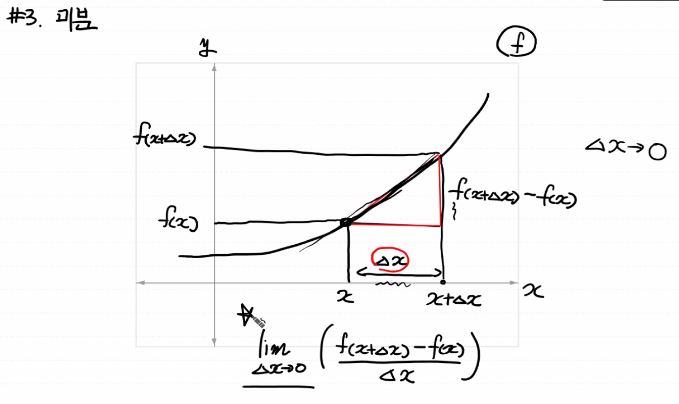 #3. 미분
y
f
f(x+Δx)
Δx→0
f(x+Δx)-f(x)
f(x)
Δx
x
x+Δx
x
lim
Δx→0
(f(x+Δx)-f(x)
Δx)